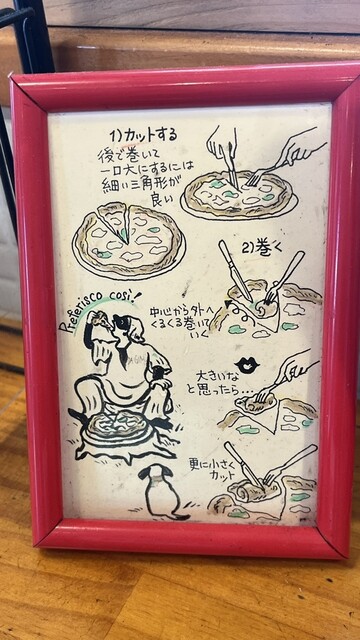 1)カットする
後で巻いて
一口大にするには
細い三角形が
良い
2)巻く
Preferisco così!
中心から外へ
くるくる巻いて
いく
大きいな
と思ったら...
更に小さく
カット